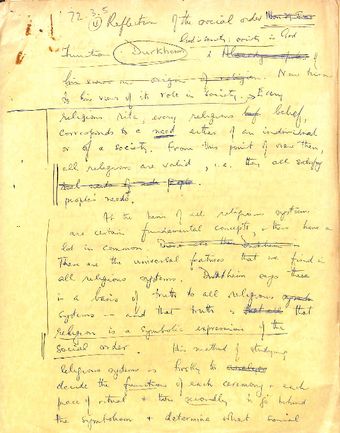 72.3.5
(ii) Reflection of the social order
God is society; society is God
Function: Durkheim &
his views on origin of religion. Now turn
to his view of its role in society. Every
religious rite, every religious belief,
corresponds to a need either of an individual
or of a society. From this point of view then,
all religions are valid, i.e. they all satisfy
people's needs.
At the basis of all religious systems
are certain fundamental concepts, & these have a
lot in common.
These are the universal features that we find in
all religious systems. Durkheim says there
is a basis of truth to all religious
systems - and that truth is that
religion is a symbolic expression of the
social order. His method of studying
religious systems is firstly to
decide the function of each ceremony & each
piece of ritual & then secondly to go behind
the symbolism & determine what social